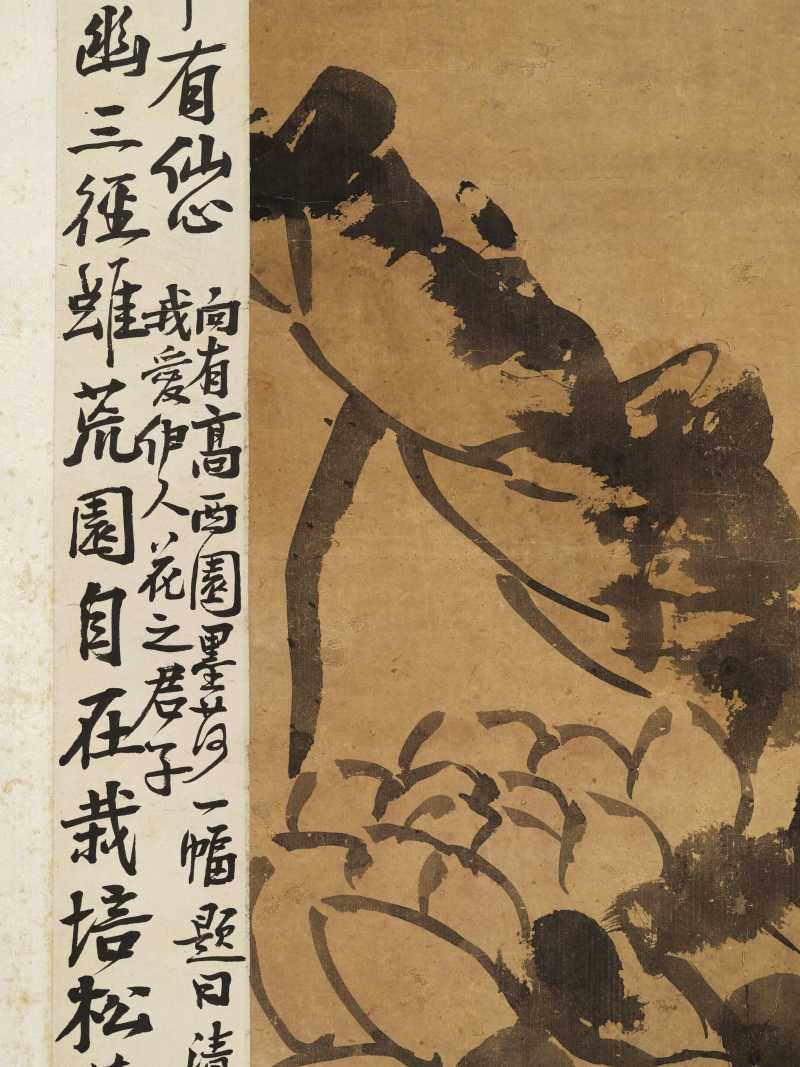 有仙心
向有高西園墨荷一幅題曰清
我愛伊人花之君子
幽三徑雖荒園自在栽培松